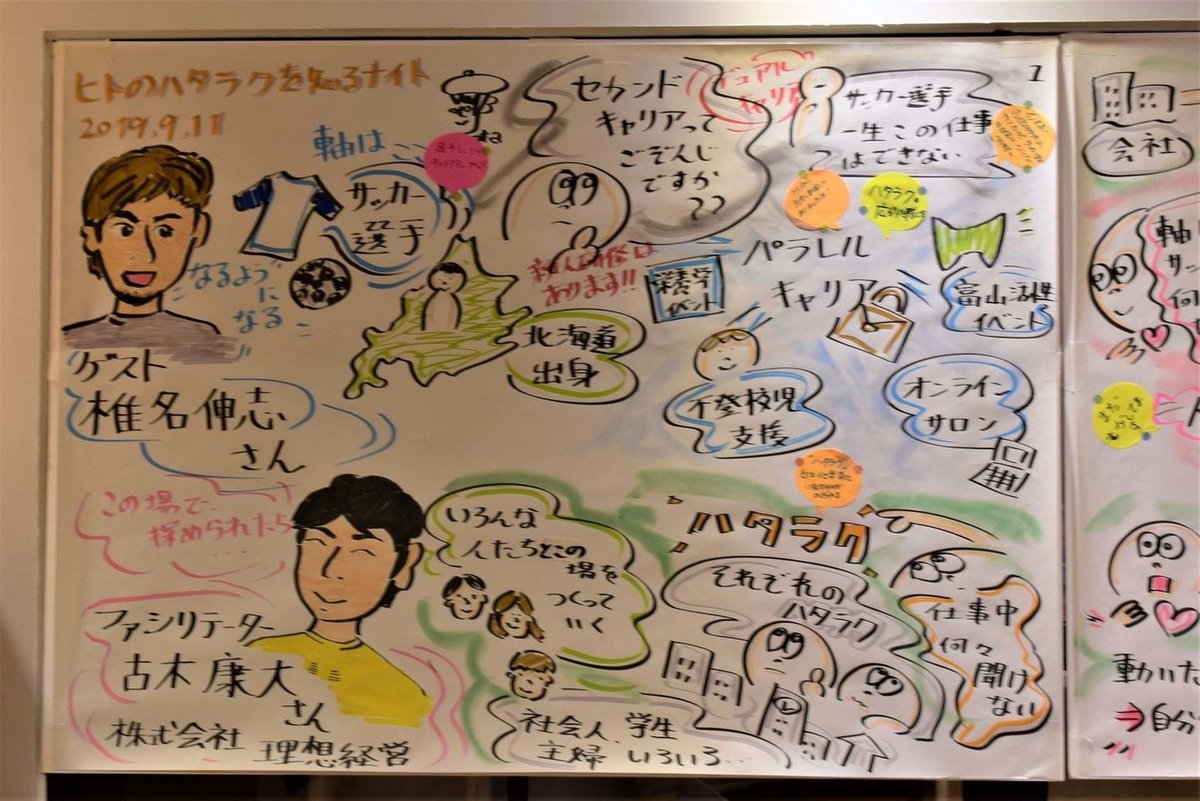 ヒトのハタラクを知るナイト
2019.9.11
軸はここ
サッカー
選手
なるよう
に
なる
ゲスト
椎名伸志
さん
北海道
出身
セカンド
キャリアって
ごぞんじ
ですか
??
デュアル
キャリア
サッカー選手
一生この仕事
はできない
1
あります!!
パラレル
キャリア
栄養学
イベント
富山活性
イベント
不登校児
支援
オンライン
サロン
この場で、
深められたら
...
ファシリテーター
古木康大
さん
株式会社
理想経営
いろんな
人たちとこの
場を
つくって
いく
社会人、学生
主婦 いろいろ...
ハタラク
それぞれの
ハタラク
仕事中
何々
聞け
ない
会社
軸
サッ
何
動いた
⇒自分